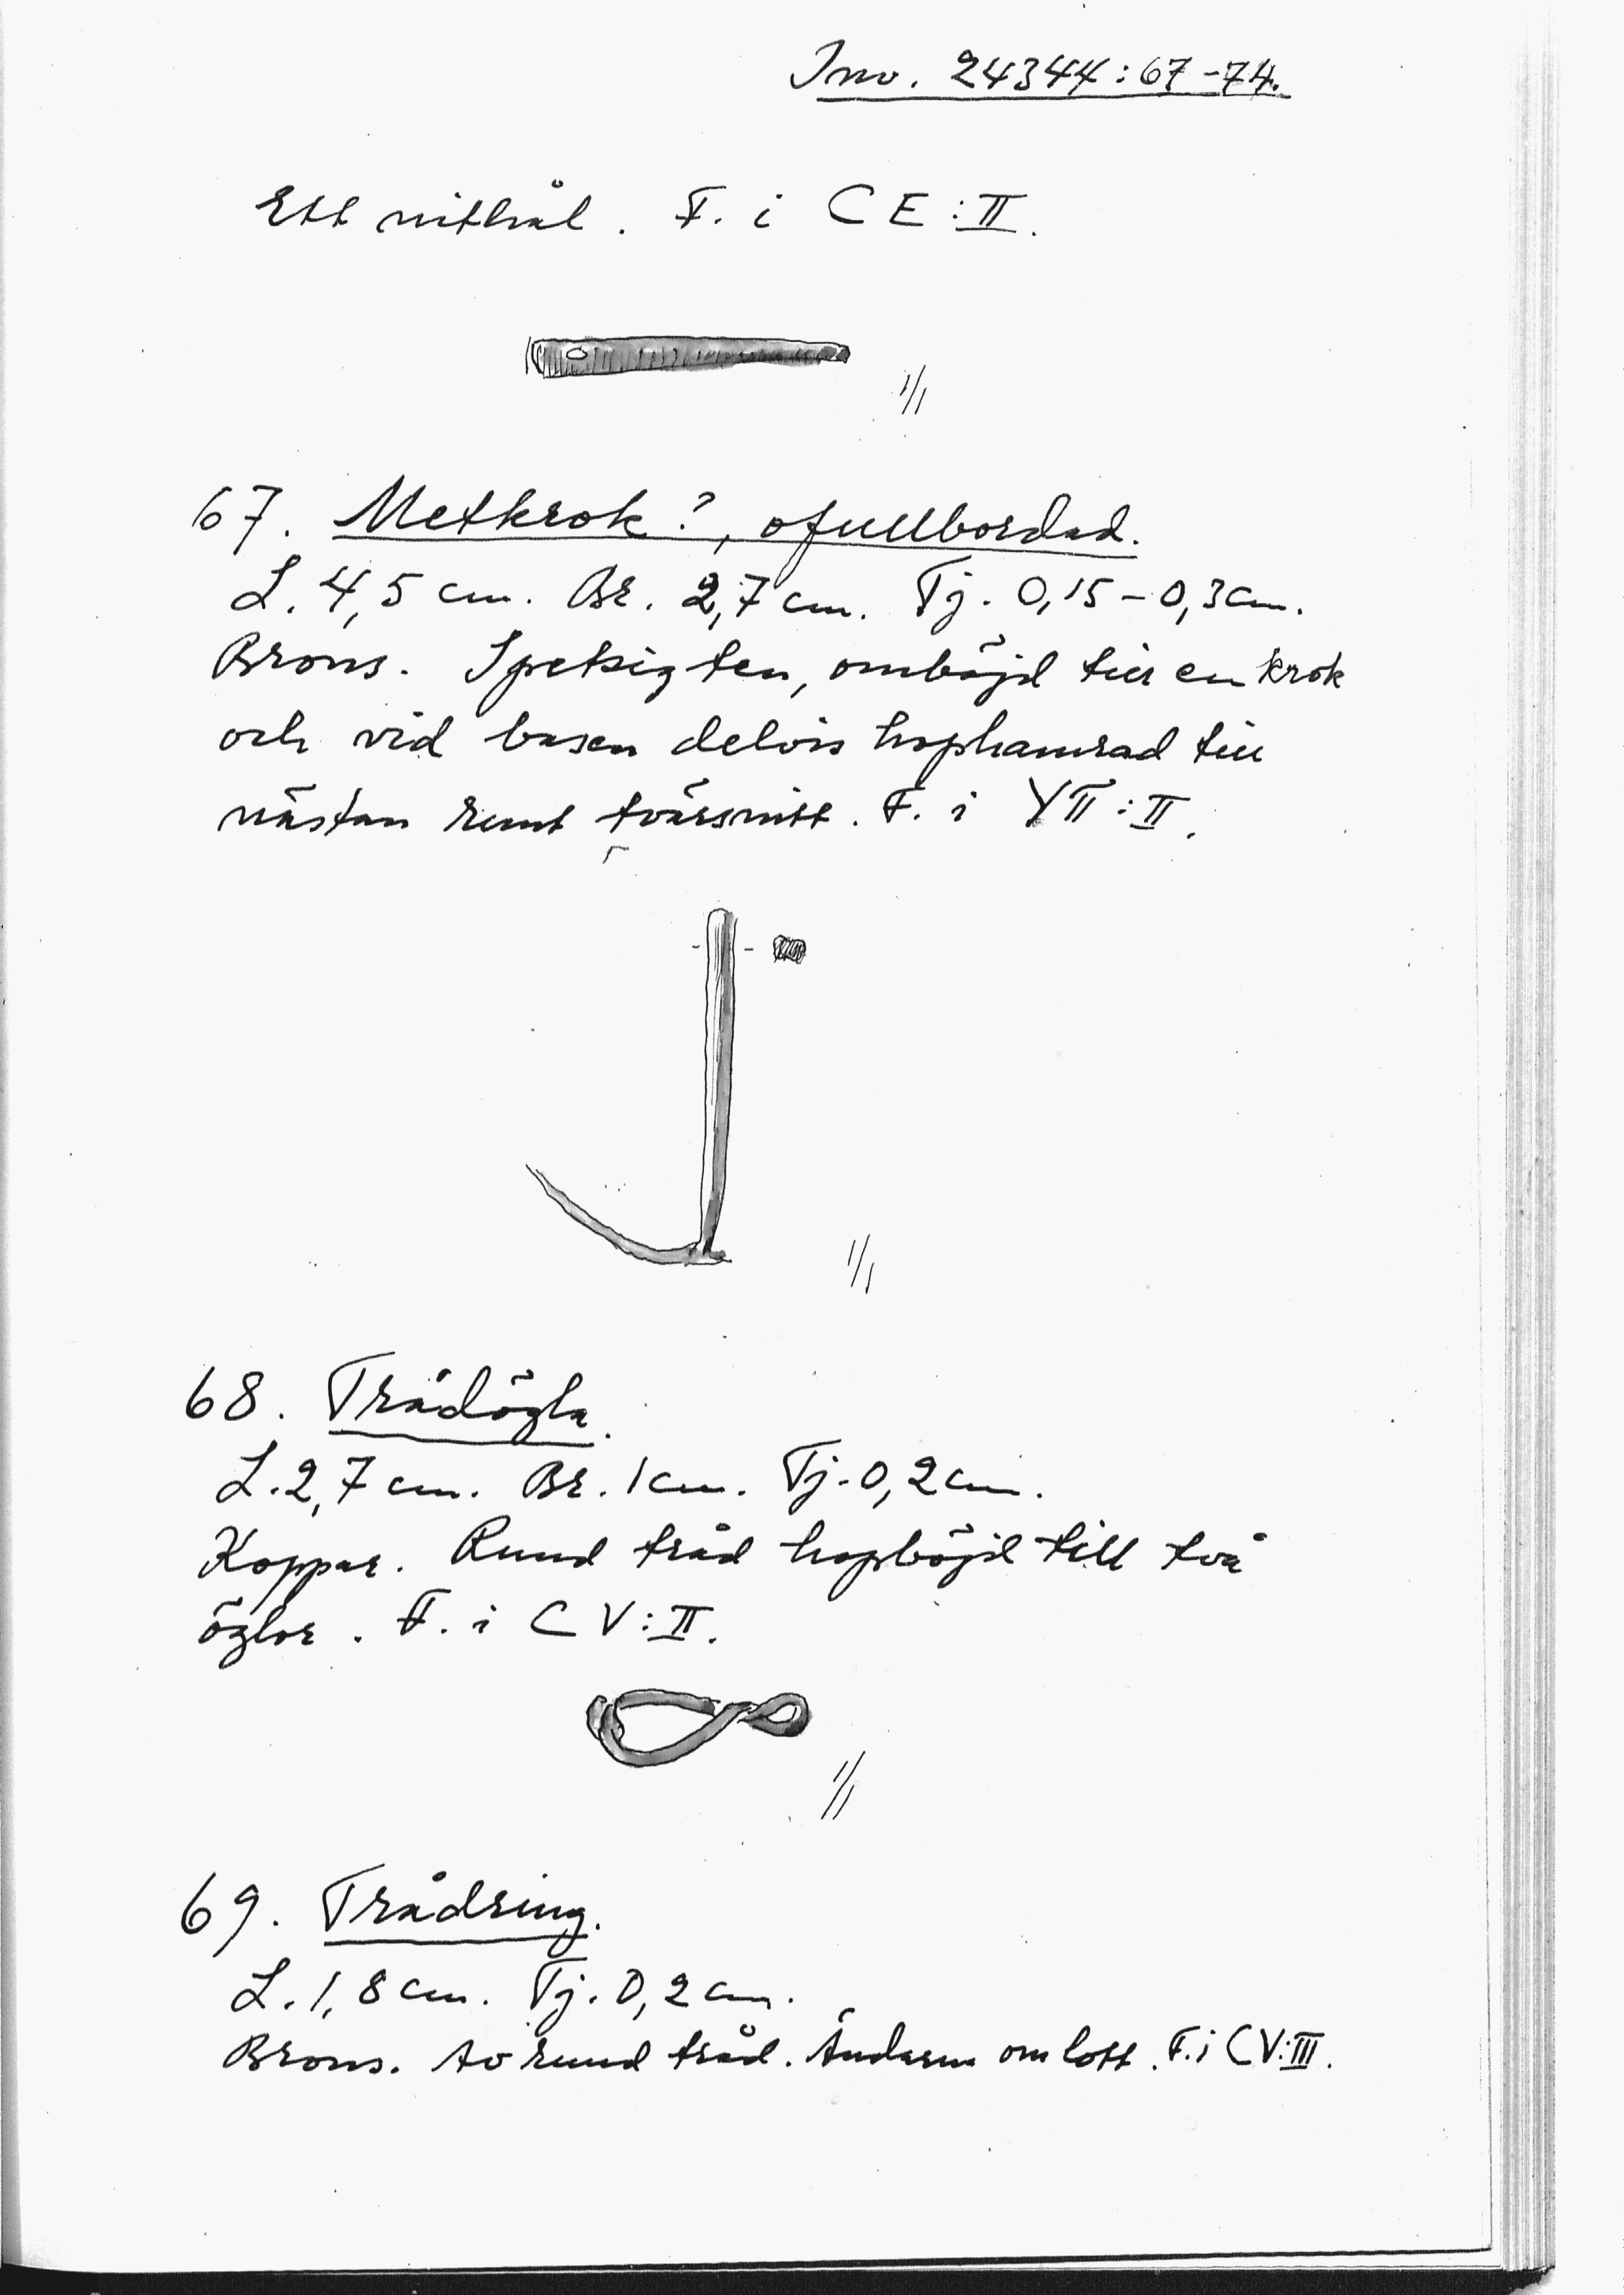 Inv. 24344:67-74.
Ett nithål. F. i CE:II.
1/1
67. Metkrok?, ofullbordad.
L. 4,5 cm. Br. 2,7 cm. Tj. 0,15-0,3 cm.
Brons. Spetsig ten, omböjd till en krok
och vid basen delvis hophamrad till
nästan runt tvärsnitt. F. i YII:II.
1/1
68. Trådögla.
L. 2,7 cm. Br. 1 cm. Tj. 0,2 cm.
Koppar. Rund tråd hopböjd till två
öglor. F. i CV:II.
1/1
69. Trådring.
L. 1,8 cm. Tj. 0,2 cm.
Brons. Av rund tråd. Ändarna om lott. F. i CV:III.